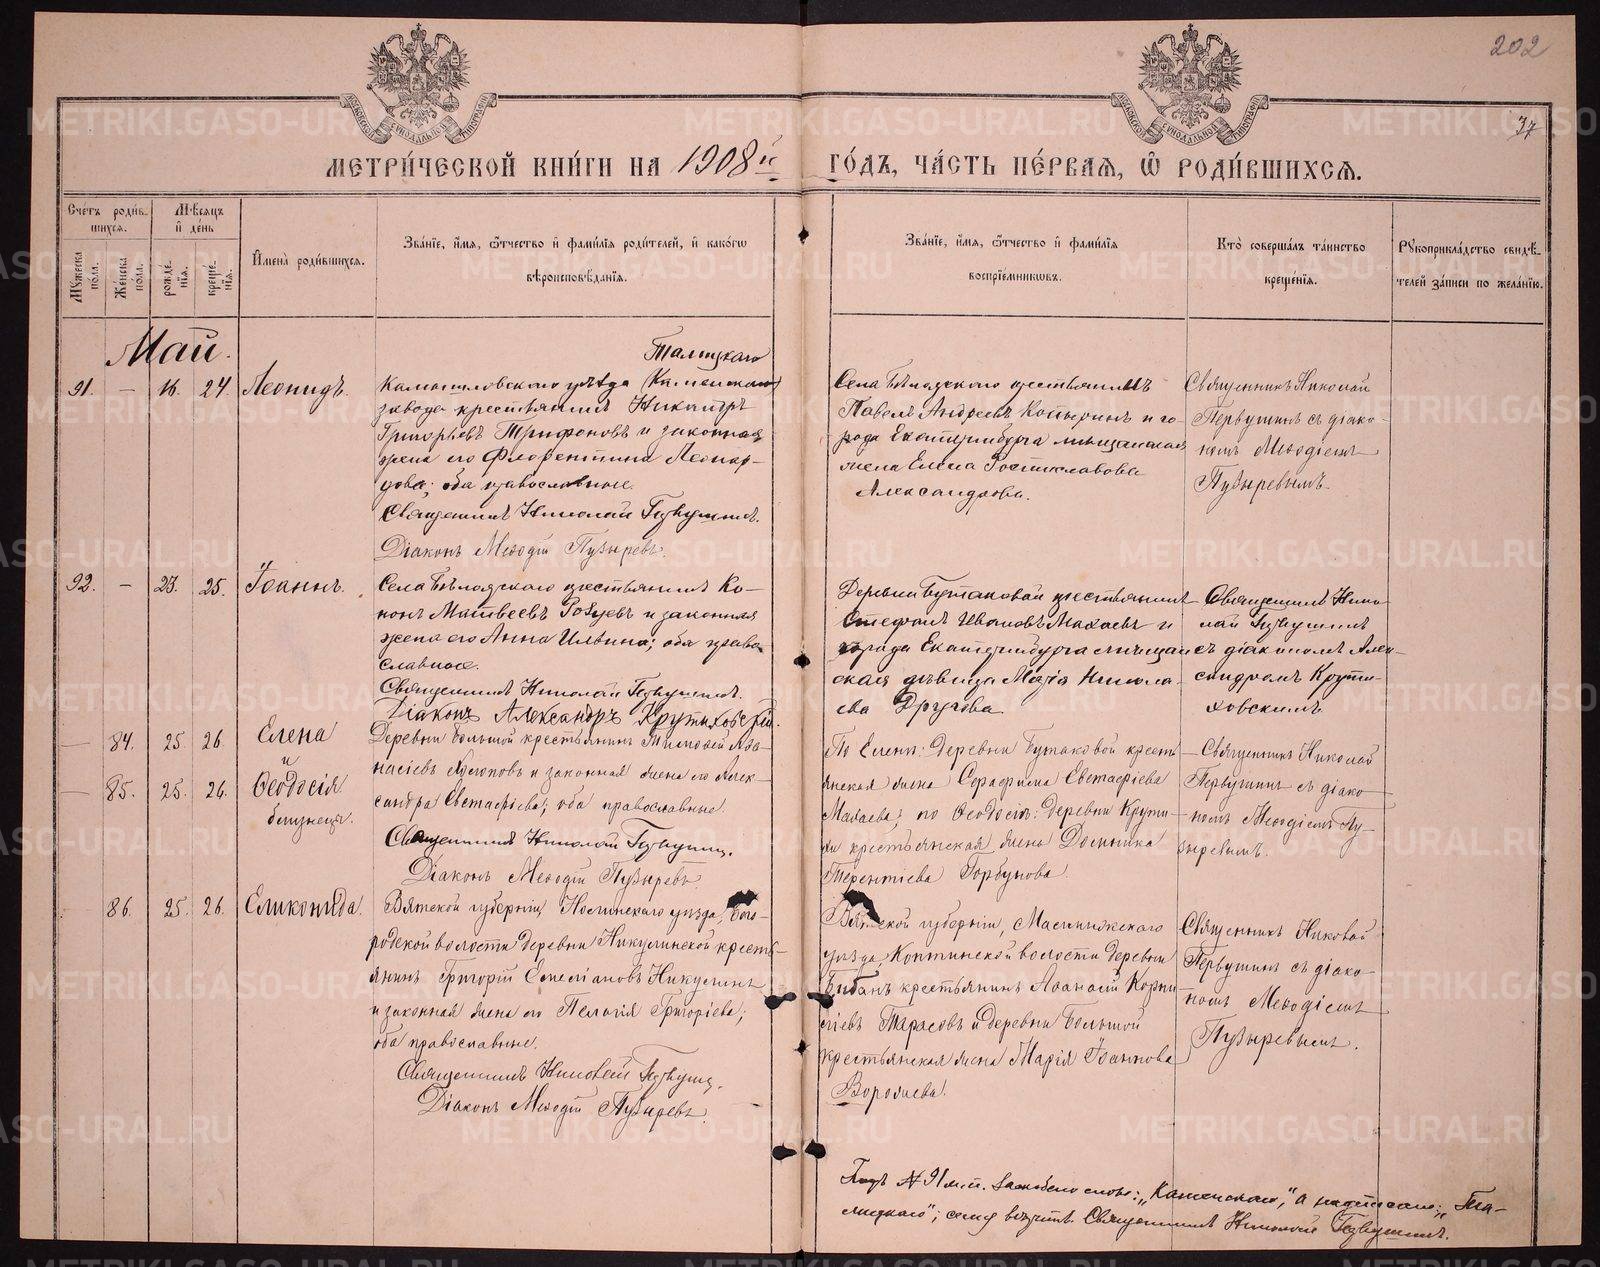 202
37
МЕТРИ́ЧЕСКОЙ КНИ́ГИ НА 1908й ГО́ДЪ, ЧА́СТЬ ПЕ́РВАѦ, Ѡ РОДИ́ВШИХСѦ.
Сче́тъ роди́вшихсѧ.
Мꙋ́жеска пола̀.
Же́нска пола̀.
Мѣ́сѧцъ и҆ де́нь
рожде́нїѧ.
креще́нїѧ.
И҆мена̀ роди́вшихсѧ.
Зва́нїе, и҆́мѧ, ѻ҆́тчество и҆ фами́лїѧ роди́телей, и҆ како́гѡ
вѣроисповѣ́данїѧ.
Зва́нїе, и҆́мѧ, ѻ҆́тчество и҆ фами́лїѧ
воспрїе́мникѡвъ.
Кто̀ соверша́лъ та́инство
креще́нїѧ.
Рꙋкоприкла́дство свидѣ́-
телей за́писи по жела́нїю.
Май.
91. — 16 24. Леонидъ.
Талицкаго
Камышловскаго уѣзда (Каменскаго)
завода крестьянинъ Никандръ
Григорьевъ Трифоновъ и законная
жена его Флорентина Леонар-
дова; оба православные.
Священникъ Николай Первушинъ.
Діаконъ Меѳодій Пузыревъ.
Села Бѣлоярскаго крестьянинъ
Павелъ Андреевъ Копыринъ и го-
рода Екатеринбурга мѣщанская
жена Елена Ростиславова
Александрова.
Священникъ Николай
Первушинъ съ діако-
номъ Меѳодіемъ
Пузыревымъ.
92. — 23. 25. Іоаннъ.
Села Бѣлоярскаго крестьянинъ Ко-
нонъ Матвеевъ и законная
жена его Анна Ильина; оба право-
славные.
Священникъ Николай Первушинъ.
Діаконъ Александръ Крутиховскій.
Деревни Бутаковой крестьянинъ
Стефанъ Ивановъ Махаевъ и
города Екатеринбурга мѣщан-
ская дѣвица Марія Никола-
ева Другова.
Священникъ Нико-
лай Первушинъ
съ діакономъ Алек-
сандромъ Крути-
ховскимъ
— 84. 25 26. Елена
и
— 85. 25. 26. Ѳеодосія
близнецы.
Деревни Большой крестьянинъ Тимоѳей Аѳа-
насіевъ и законная жена его Алек-
сандра Евстафіева; оба православные
Священникъ Николай Первушинъ.
Діаконъ Меѳодій Пузыревъ.
По Еленѣ: Деревни Бутаковой кресть-
янская жена Серафима Евстафіева
Махаева; по Ѳеодосіи: деревни Крути-
хи крестьянская жена Домника
Терентіева Горбунова.
Священникъ Николай
Первушинъ съ діако-
номъ Меѳодіемъ Пу-
зыревымъ.
86. 25. 26. Еликонида.
Вятской губерніи, Нолинскаго уѣзда, Бого-
родской волости деревни Никулинской кресть-
янинъ Григорій Емеліановъ Никулинъ
и законная жена его Пелагія Григоріева;
оба православные.
Священникъ Николай Первушинъ.
Діаконъ Меѳодій Пузыревъ.
Вятской губерніи, Малмыжскаго
уѣзда, волости деревни
крестьянинъ Аѳанасій Корни-
ліевъ Тарасовъ и деревни Большой
крестьянская жена Марія Іоаннова
Ворошева.
Священникъ Николай
Первушинъ съ діако-
номъ Меѳодіемъ
Пузыревымъ.
Подъ № 91 м.п. заскоблено слово: „Каменскаго", а надписано: „Та-
лицкаго"; сему вѣрить. Священникъ Николай Первушинъ.